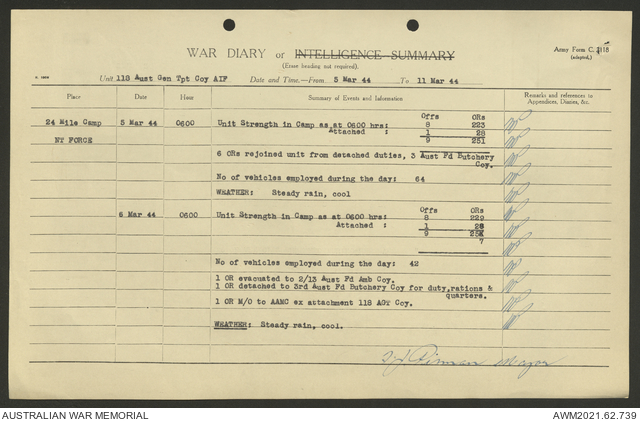 WAR DIARY or INTELLIGENCE SUMMARY
Army Form C.2118
(adapted.)
(Erase heading not required).
Unit 118 Aust Gen Tpt Coy AIF Date and Time.—From 5 Mar 44 To 11 Mar 44
Place Date Hour Summary of Events and Information Remarks and references to Appendices, Diaries, &c.
Offs ORs
24 Mile Camp 5 Mar 44 0600 Unit Strength in Camp as at 0600 hrs: 8 223
Attached : 1 28
NT FORCE 9 251
6 ORs rejoined unit from detached duties, 3 Aust Fd Butchery
Coy.
No of vehicles employed during the day: 64
WEATHER: Steady rain, cool
Offs ORs
6 Mar 44 0600 Unit Strength in Camp as at 0600 hrs: 8 229
Attached : 1 28
9 25
7
No of vehicles employed during the day: 42
1 OR evacuated to 2/13 Aust Fd Amb Coy.
1 OR detached to 3rd Aust Fd Butchery Coy for duty,rations &
quarters.
1 OR M/O to AAMC ex attachment 118 AGT Coy.
WEATHER: Steady rain, cool.
Major
AUSTRALIAN WAR MEMORIAL AWM2021.62.739